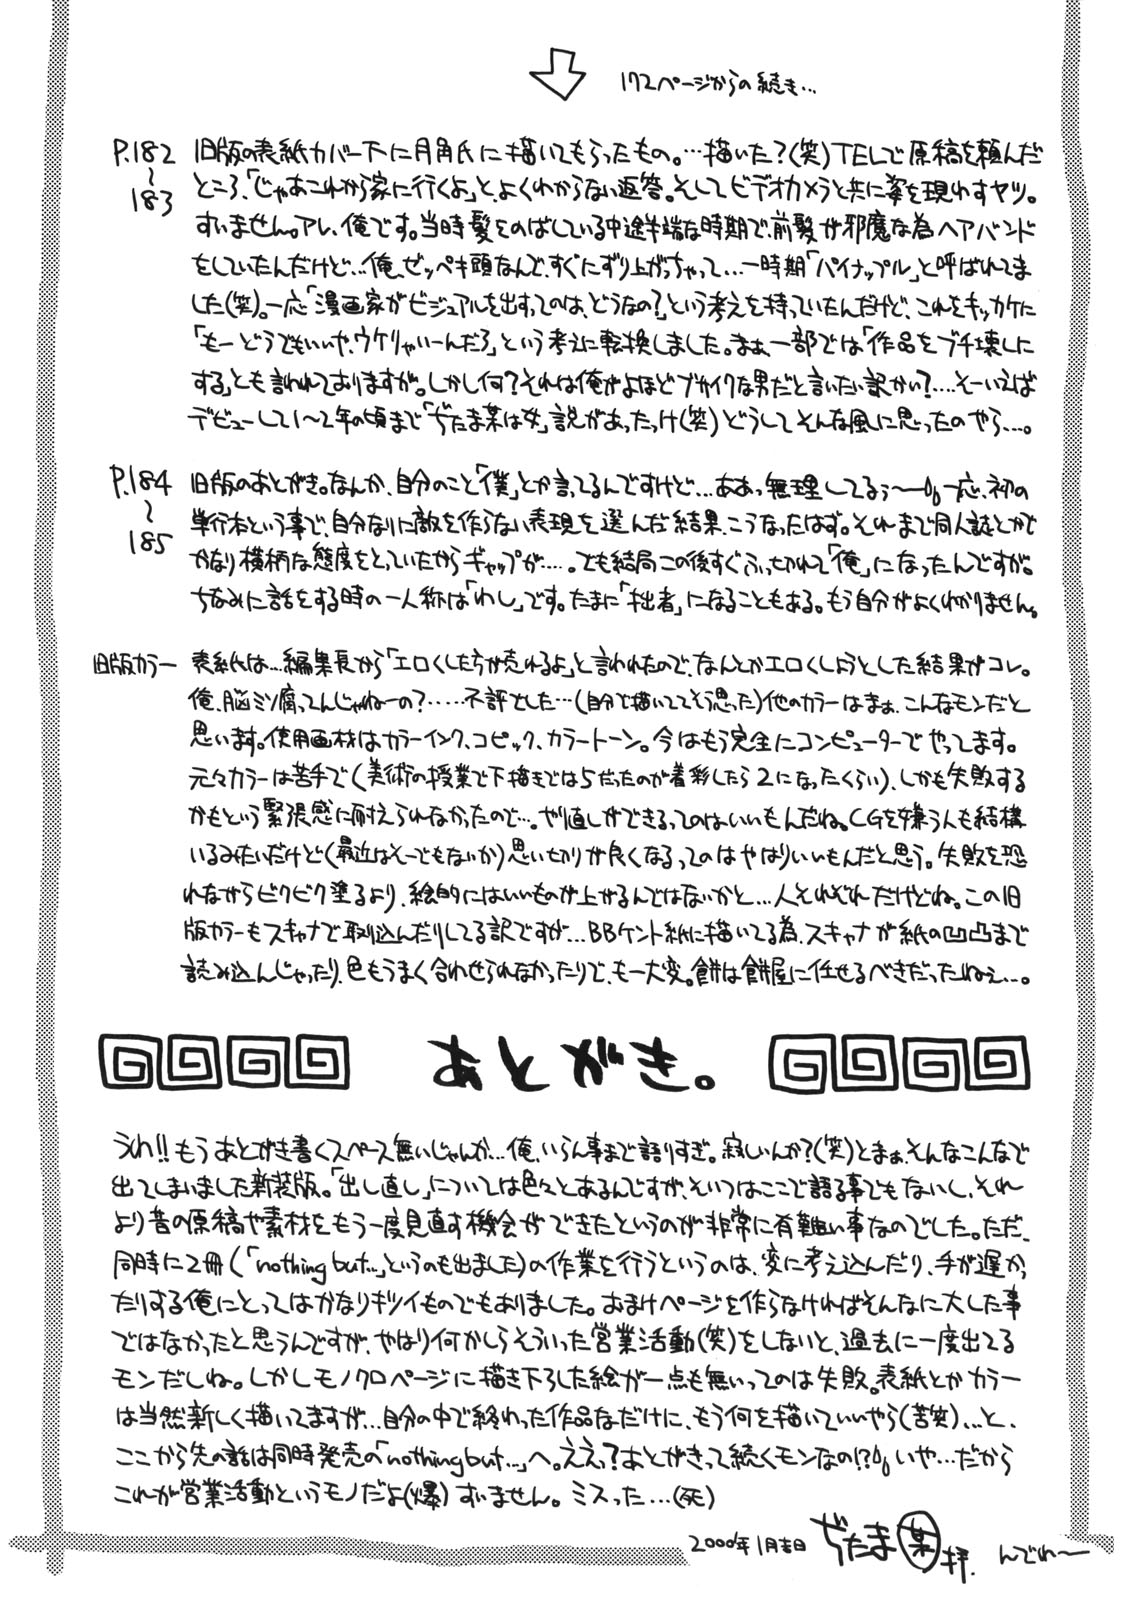 172ページからの続き…
P.182 旧版の表紙カバー下に月角氏に描いてもらったもの。…描いた?(笑)TELで原稿を頼んだ
〜 ところ、「じゃあこれから家に行くよ」と、よくわからない返答。そしてビデオカメラと共に姿を現わすヤツ。
183 すいません。アレ、俺です。当時髪をのばしている中途半端な時期で、前髪が邪魔な為ヘアバンド
をしていたんだけど…俺、ゼッペキ頭なんで、すぐにずり上がっちゃって…一時期「パイナップル」と呼ばれてま
した(笑)。一応「漫画家がビジュアルを出すってのは、どうなの?」という考えを持っていたんだけど、これをキッカケに
「もーどうでもいいや、ウケりゃいーんだろ」という考えに転換しました。まぁ、一部では「作品をブチ壊しに
する」とも言われておりますが。しかし何?それは俺がよほどブサイクな男だと言いたい訳かい?….そーいえば
デビューして1〜2年の頃まで「ぢたま某は女」説があったっけ(笑)どうしてそんな風に思ったのやら…。
P.184 旧版のあとがき。なんか、自分のこと「僕」とか言ってるんですけど…ああっ無理してるぅ〜一応、初の
〜 単行本という事で、自分なりに敵を作らない表現を選んだ結果、こうなったはず。それまで同人誌とかで
185 かなり横柄な態度をとっていたからギャップが….。でも結局この後すぐふっきれて「俺」になったんですが。
ちなみに話をする時の一人称は「わし」です。たまに「拙者」になることもある。もう自分がよくわかりません。
旧版カラー 表紙は…編集長から「エロくした方が売れるよ」と言われたので、なんとかエロくしようとした結果がコレ。
俺、脳ミソ腐ってんじゃねーの?……不評でした…(自分で描いててそう思った)他のカラーはまぁ、こんなモンだと
思います。使用画材はカラーインク、コピック、カラートーン。今はもう完全にコンピューターでやってます。
元々カラーは苦手で(美術の授業で下描きでは5だったのが着彩したら2になったくらい)、しかも失敗する
かもという緊張感に耐えられなかったので…。やり直しができるってのはいいもんだね。CGを嫌う人も結構
いるみたいだけど(最近はそーでもないか)思い切りが良くなるってのはやはりいいもんだと思う。失敗を恐
れながらビクビク塗るより、絵的にはいいものが上がるんではないかと…人それぞれだけどね。この旧
版カラーもスキャナで取り込んだりしてる訳ですが…BBケント紙に描いてる為、スキャナが紙の凹凸まで
読み込んじゃったり、色もうまく合わせられなかったりで、もー大変。餅は餅屋に任せるべきだったねぇ…。
あとがき。
うわ!!もうあとがき書くスペース無いじゃんか…俺、いらん事まで語りすぎ。寂しいんか?(笑)とまぁ、そんなこんなで
出てしまいました新装版。「出し直し」については色々とあるんですが、そいつはここで語る事でもないし、それ
より昔の原稿や素材をもう一度見直す機会ができたというのが非常に有難い事なのでした。ただ、
同時に2冊(「nothing but…」というのも出ました)の作業を行うというのは、変に考え込んだり、手が遅かっ
たりする俺にとってはかなりキツイものでもありました。おまけページを作らなければそんなに大した事
ではなかったと思うんですが、やはり何かしらそういった営業活動(笑)をしないと、過去に一度出てる
モンだしね。しかしモノクロページに描き下ろした絵が一点も無いってのは失敗。表紙とかカラー
は当然新しく描いてますが…自分の中で終わった作品なだけに、もう何を描いていいやら(苦笑)…と、
ここから先の話は同時発売の「nothing but…」へ。ええっ?あとがきって続くモンなの!?いや…だから
これーが営業活動というモノだよ(爆)すいません。ミスった…(死)
2000年1月吉日 ぢたま某 拝. んでわ〜